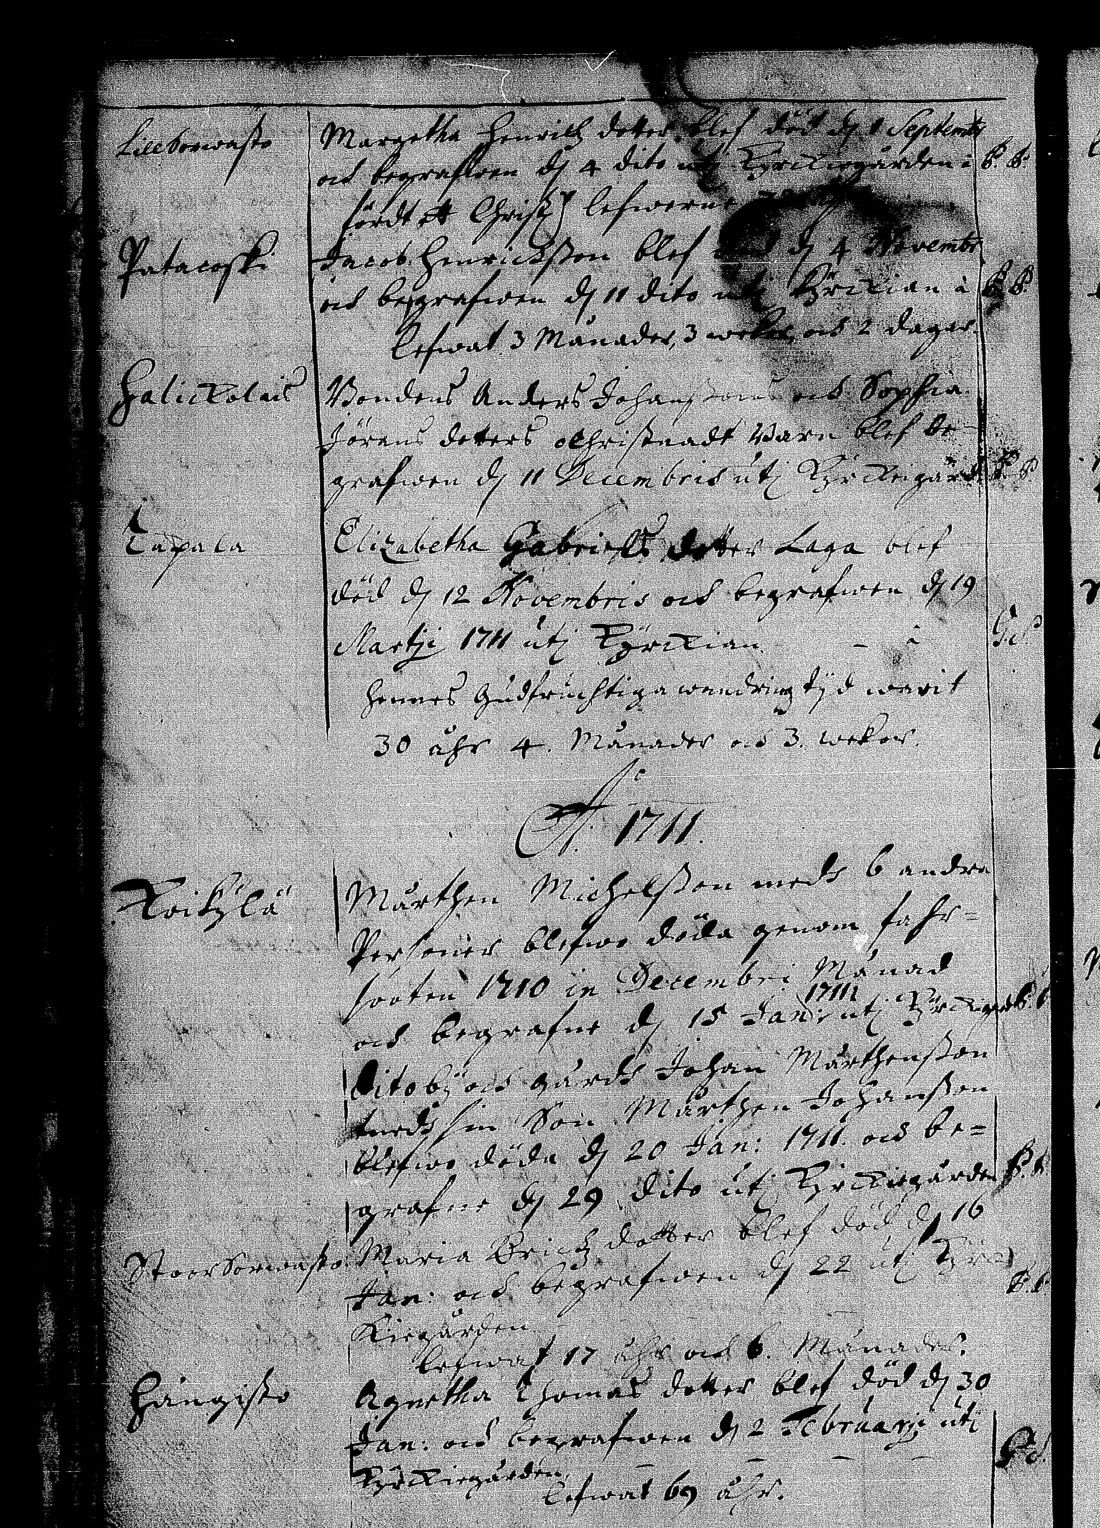 Lillsorwasto
Margetha Henrichz dotter blef död dj 1 Septembr
och begrafwen dj 4 dito utj Kyrckiogården
fördt ett Christl lefwerne
Patacoski
Jacob Henrichsson blef död dj 4 Novembr
och begrafwen dj 11 dito utj Kyrckian
lefwat 3 Månader, 3 wekor och 2 dagar.
Halickolais
Bondens Anders Johanssons och Sophia
Jörens doters ochristnadt Barn blef be-
grafwen dj 11 Decembris utj Kyrckiogård
Tapala
Elizabetha Gabriels dotter Laga blef
död dj 12 Novembris och begrafwen dj 19
Martij 1711 utj Kyrckian
hennes Gudfruchtiga wandringz tijd warit
30 åhr 4. Månader och 3. wekor.
Ao. 1711.
Koikylä
Mårthen Michelsson medh 6 andra
Personer blefwo döda genom fahr=
sooten 1710 in Decembri Månad
1711
och begrafne dj 15 Jan: utj Kyrckiogrd
Ditoby och gårdh Johan Mårthensson
medh sin Son Mårthen Johansson
blefwo döda dj 20 Jan: 1711. och be=
grafne dj 29 dito utj Kyrckiogården
Stoorsorwasto
Maria Erichz dotter blef död dj 16
Jan: och begrafwen dj 22 utj Kyrc
kiogården
lefwat 17 åhr och 6. Månader.
Hängisto
Agnetha Thomas dotter blef död dj 30
Jan: och begrafwen dj 2 Februarij uti
Kyrckiogården
lefwat 69 åhr.